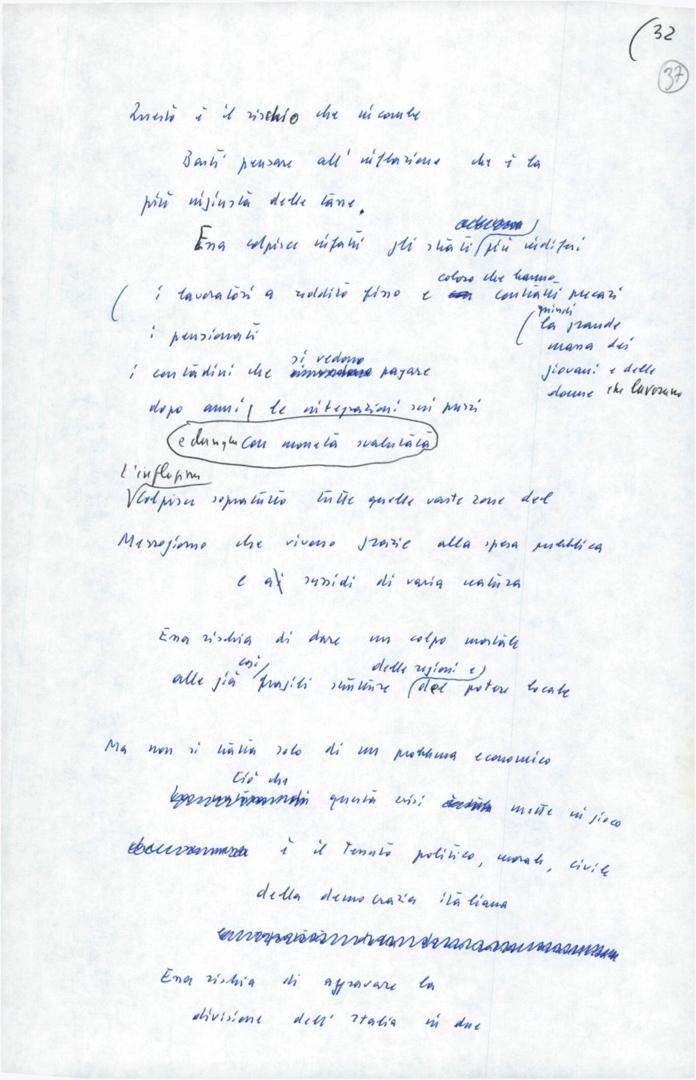 (32
37
Questo è il rischio che incombe
Basti pensare all'inflazione che è la
più ingiusta delle tasse.
Essa colpisce infatti gli strati più indifesi
coloro che hanno
( i lavoratori a reddito fisso e contratti precari
quindi
( la grande
i pensionati
massa dei
si vedono
giovani e delle
i contadini che pagare
donne che lavorano
dopo anni le integrazioni sui prezzi
e dunque con moneta svalutata
L'inflazione
Colpisce soprattutto tutte quelle vaste zone del
Mezzogiorno che vivono grazie alla spesa pubblica
e ai sussidi di varia natura
Essa rischia di dare un colpo mortale
così
delle regioni e
alle già fragili strutture del potere locale
Ma non si tratta solo di un problema economico
Ciò che
questa crisi mette in gioco
è il tessuto politico, morale, civile
della democrazia italiana
Essa rischia di aggravare la
divisione dell'Italia in due